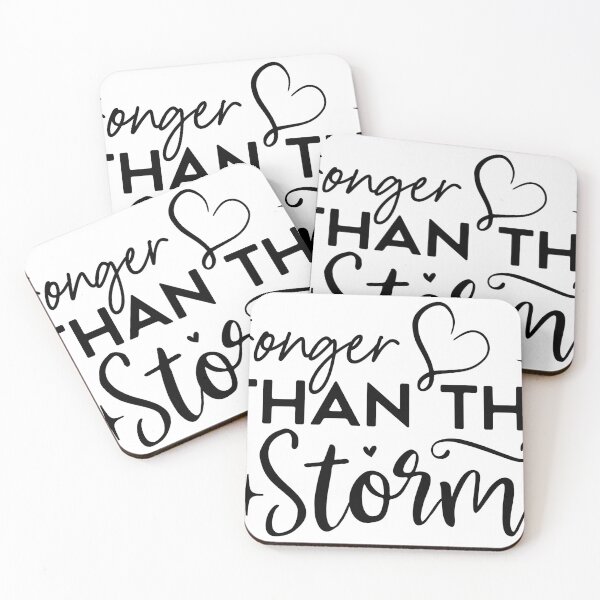 onger
THAN TH
onger
THAN TH
Storm
onger
THAN TH
Stor
onger
THAN TH
Storm